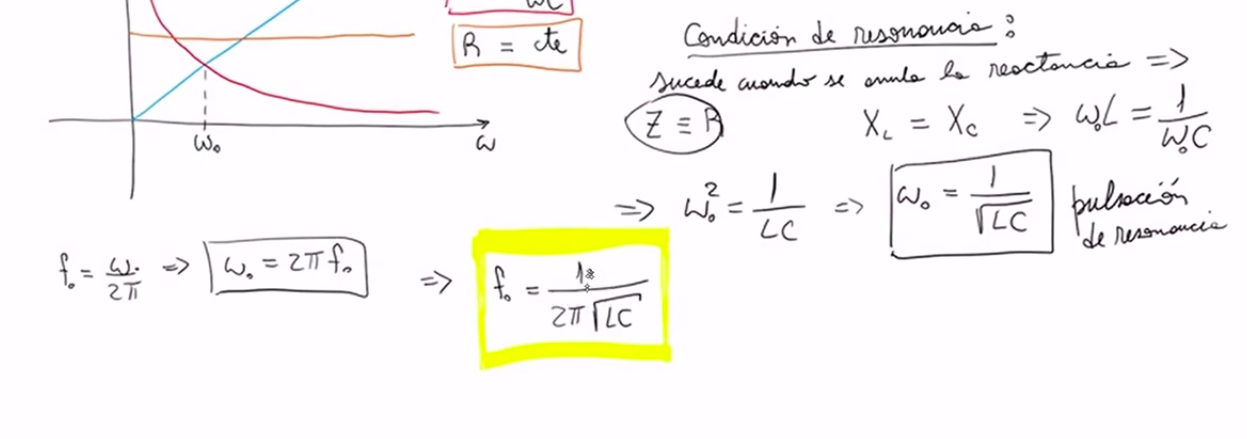 ωC
R = cte
Condición de resonancia:
sucede cuando se anula la reactancia =>
Z ≡ R
X_L = X_C => ω₀L = 1/(ω₀C)
ω₀
ω
=> ω₀² = 1/(LC) => ω₀ = 1/√(LC) pulsación
de resonancia
f₀ = ω₀/(2π) => ω₀ = 2πf₀ => f₀ = 1/(2π√(LC))